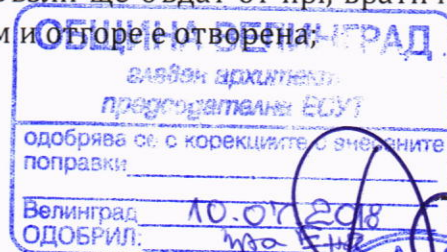 ще бъдат от
м и отгоре е отворена;
ОБЩИНА ВЕЛИНГРАД
главен архитект
председател на ЕСУТ
одобрява се с корекциите с зачерените
поправки
Велинград 10.07.2018
ОДОБРИЛ: